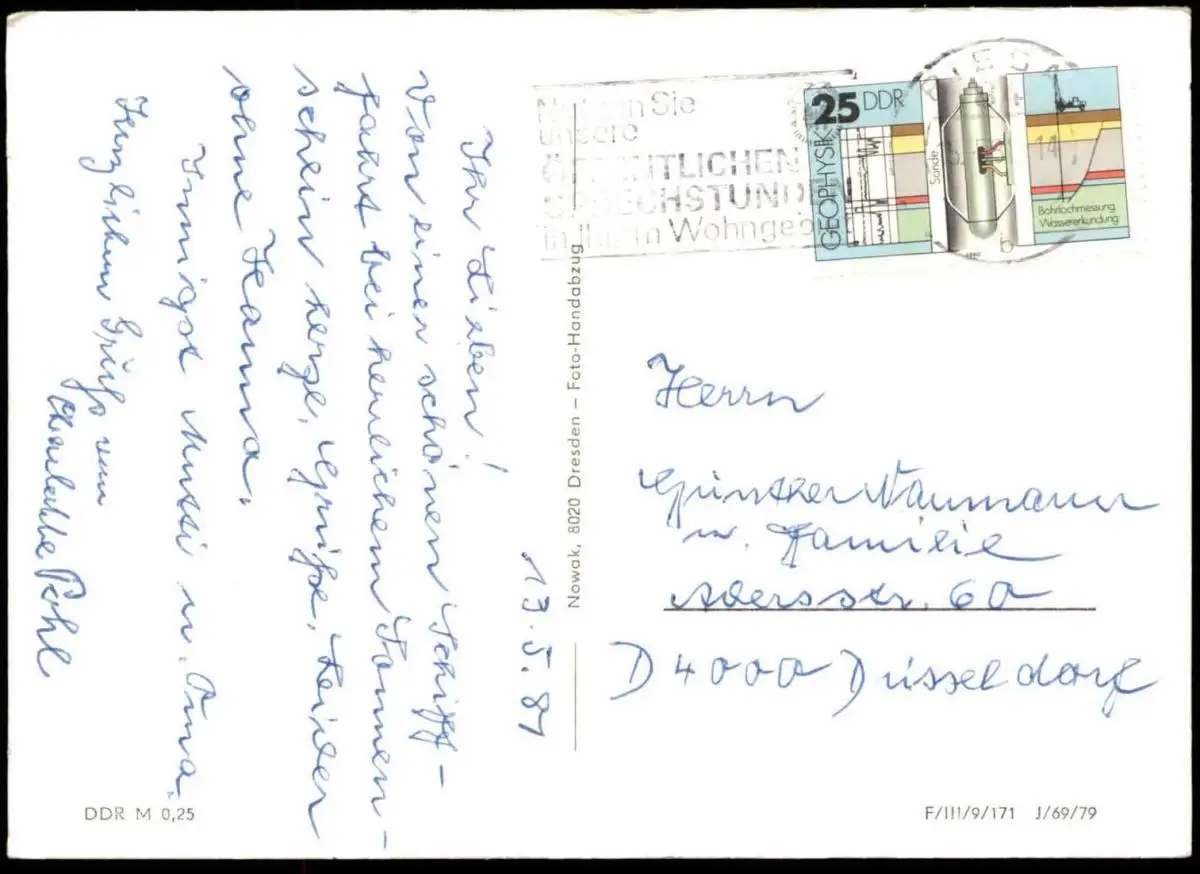 Ihr Lieben!
Von einer schönen Schiff-
fahrt bei herrlichem Sonnen-
schein herzl. Grüße. Leider
ohne Hanna.
Innigst Mutti u. Oma.
Herzlichen Gruß von
Pohl
13.5.81
Nowak, 8020 Dresden – Foto-Handabzug
Nutzen Sie
unsere
ÖFFENTLICHEN
SPRECHSTUNDEN
in Ihrem Wohngeb
25 DDR
GEOPHYSIK
Sonde
Bohrlochmessung
Wassererkundung
1980
Herrn
Günther Naumann
u. Familie
Adersstr. 60
D 4000 Düsseldorf
DDR M 0,25
F/III/9/171 J/69/79